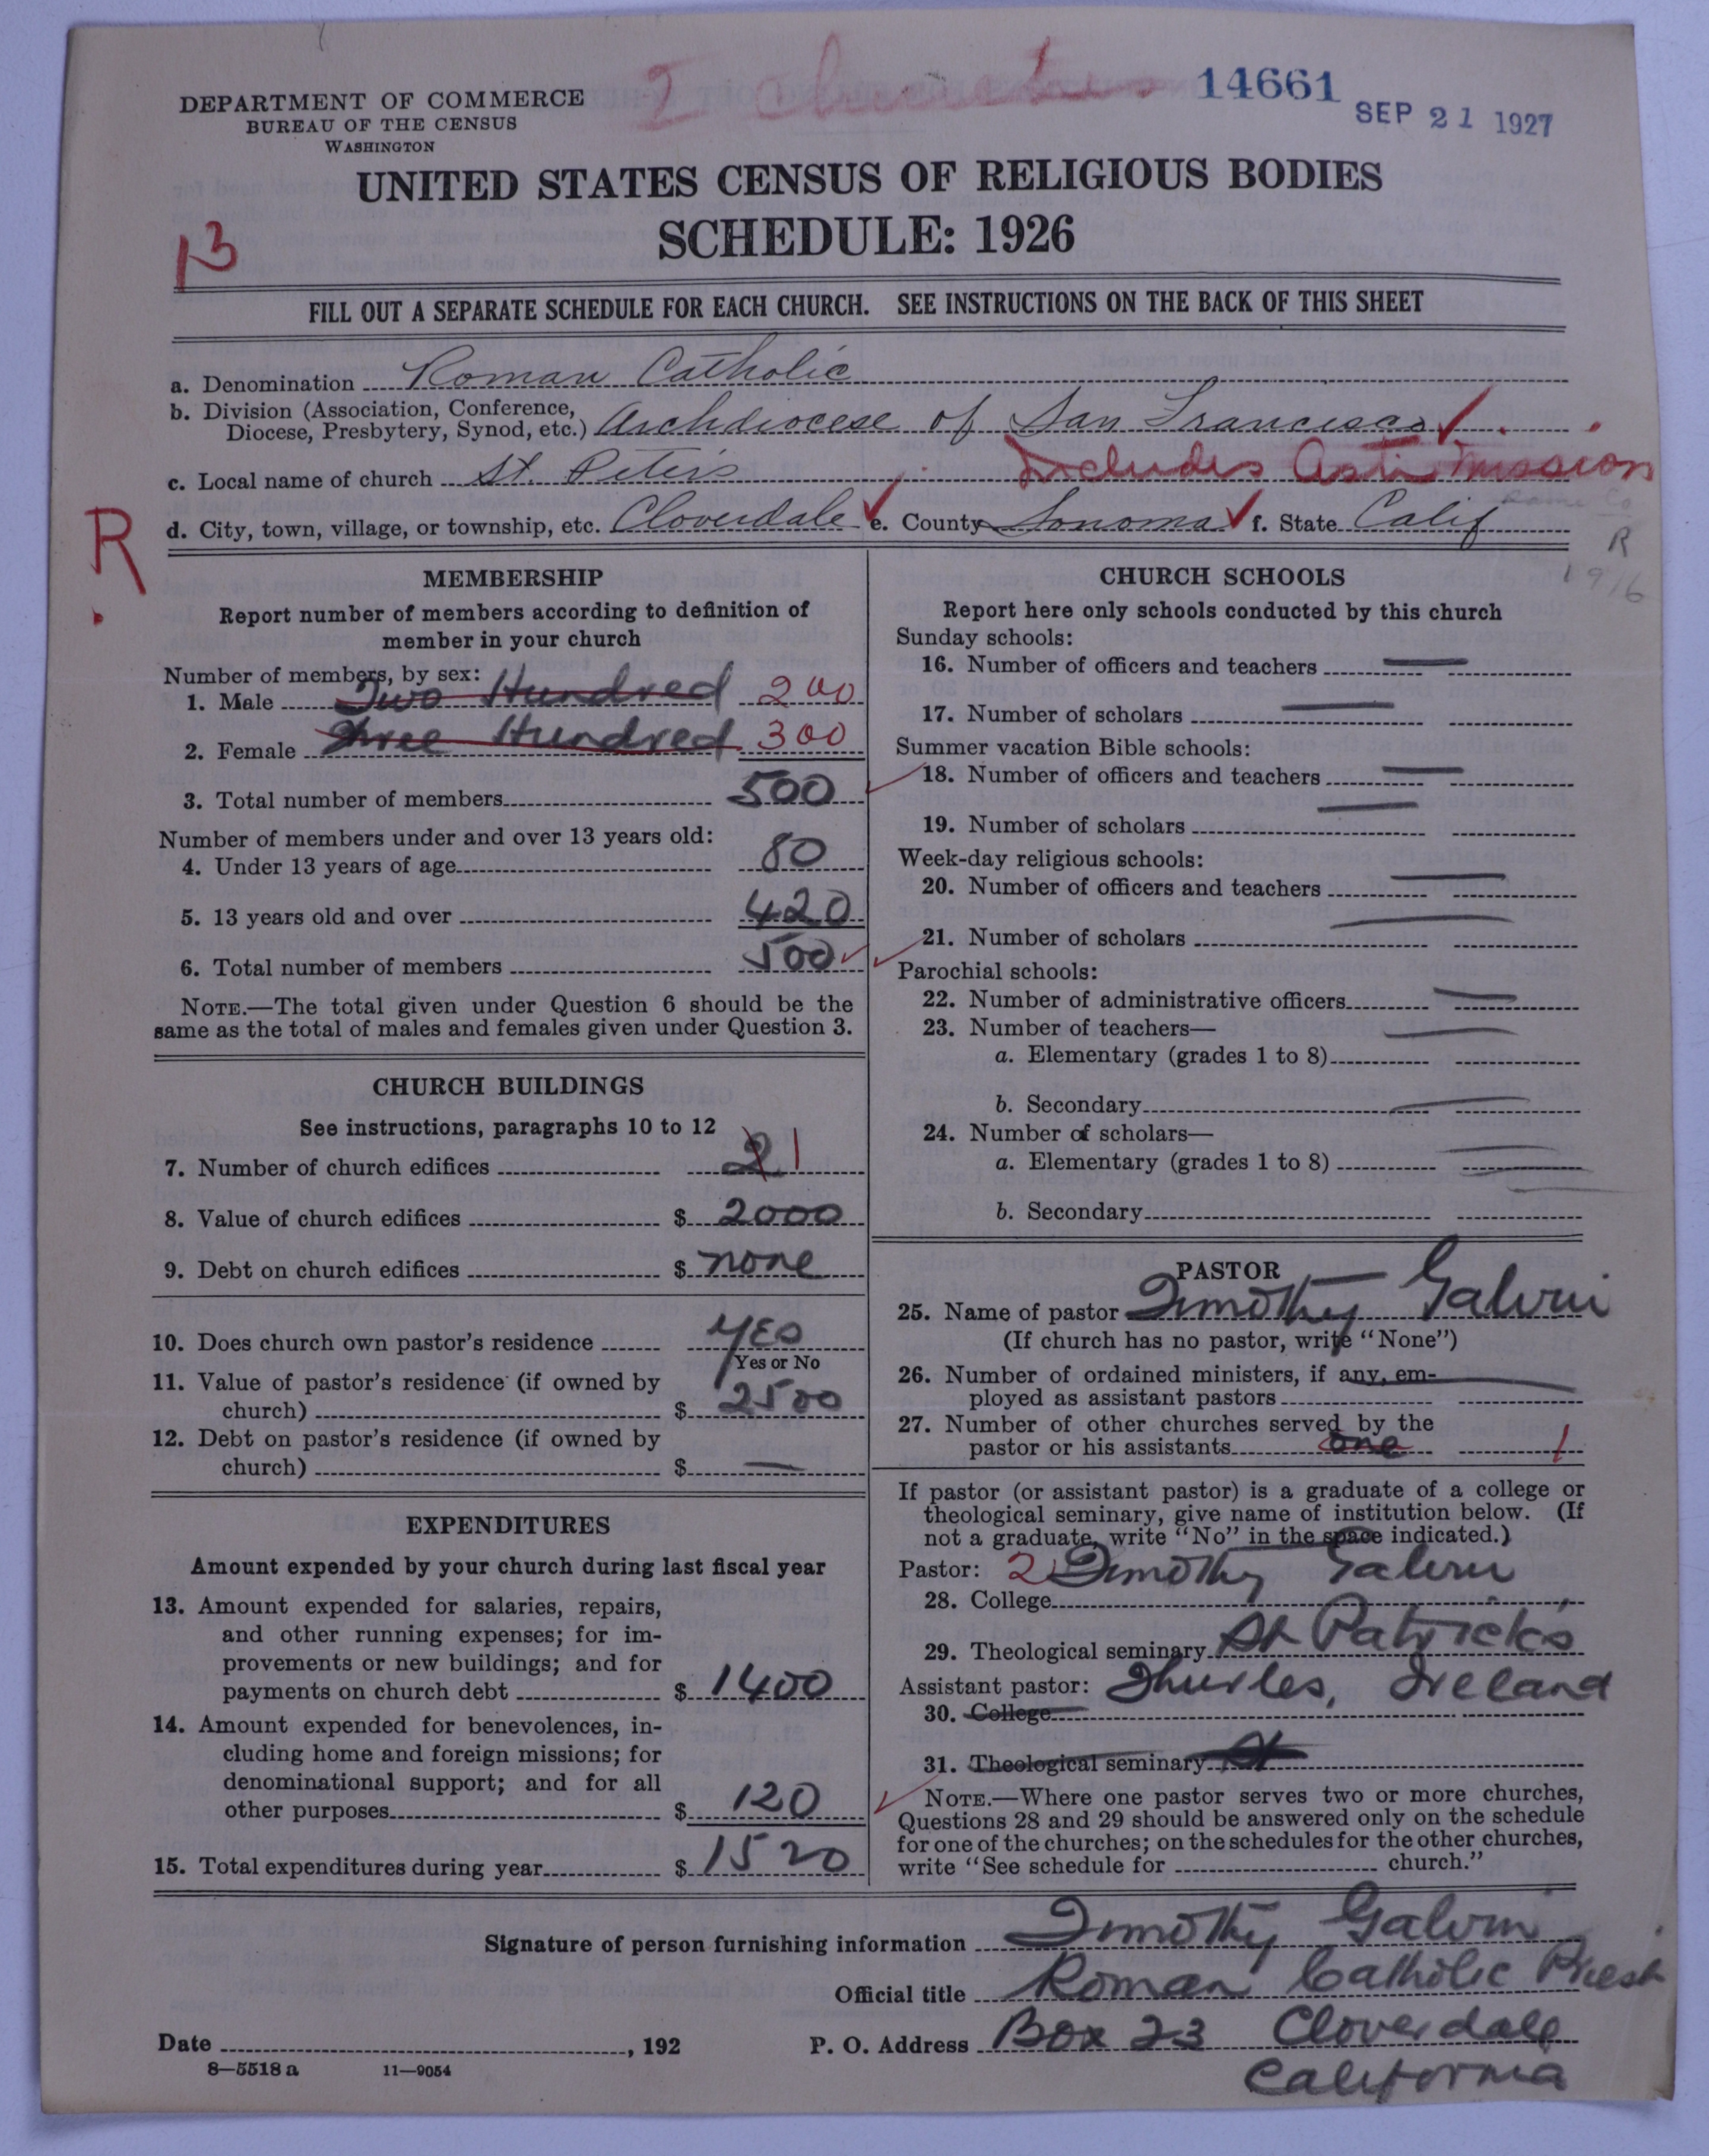 14661
SEP 21 1927
DEPARTMENT OF COMMERCE
BUREAU OF THE CENSUS
WASHINGTON
UNITED STATES CENSUS OF RELIGIOUS BODIES
SCHEDULE: 1926
13
FILL OUT A SEPARATE SCHEDULE FOR EACH CHURCH. SEE INSTRUCTIONS ON THE BACK OF THIS SHEET
a. Denomination Roman Catholic
b. Division (Association, Conference, Diocese, Presbytery, Synod, etc.) Archdiocese of San Francisco
c. Local name of church St. Peter's Includes Asti Mission
same Co
d. City, town, village, or township, etc. Cloverdale e. County Sonoma f. State Calif
R
R
1916
MEMBERSHIP
Report number of members according to definition of
member in your church
Number of members, by sex:
1. Male Two Hundred 200
2. Female Three Hundred 300
3. Total number of members 500
Number of members under and over 13 years old:
4. Under 13 years of age 80
5. 13 years old and over 420
6. Total number of members 500
NOTE.—The total given under Question 6 should be the
same as the total of males and females given under Question 3.
CHURCH BUILDINGS
See instructions, paragraphs 10 to 12
7. Number of church edifices 2 1
8. Value of church edifices $ 2000
9. Debt on church edifices $ none
10. Does church own pastor's residence Yes
Yes or No
11. Value of pastor's residence (if owned by
church) $ 2500
12. Debt on pastor's residence (if owned by
church) $ —
EXPENDITURES
Amount expended by your church during last fiscal year
13. Amount expended for salaries, repairs,
and other running expenses; for im-
provements or new buildings; and for
payments on church debt $ 1400
14. Amount expended for benevolences, in-
cluding home and foreign missions; for
denominational support; and for all
other purposes $ 120
15. Total expenditures during year $ 1520
CHURCH SCHOOLS
Report here only schools conducted by this church
Sunday schools:
16. Number of officers and teachers —
17. Number of scholars —
Summer vacation Bible schools:
18. Number of officers and teachers —
19. Number of scholars —
Week-day religious schools:
20. Number of officers and teachers —
21. Number of scholars —
Parochial schools:
22. Number of administrative officers —
23. Number of teachers—
a. Elementary (grades 1 to 8) —
b. Secondary —
24. Number of scholars—
a. Elementary (grades 1 to 8) —
b. Secondary
PASTOR
25. Name of pastor Timothy Galvin
(If church has no pastor, write "None")
26. Number of ordained ministers, if any, em-
ployed as assistant pastors —
27. Number of other churches served by the
pastor or his assistants one 1
If pastor (or assistant pastor) is a graduate of a college or
theological seminary, give name of institution below. (If
not a graduate, write "No" in the space indicated.)
Pastor: 2 Timothy Galvin
28. College
29. Theological seminary St Patrick's
Assistant pastor: Thurles, Ireland
30. College
31. Theological seminary St
NOTE.—Where one pastor serves two or more churches,
Questions 28 and 29 should be answered only on the schedule
for one of the churches; on the schedules for the other churches,
write "See schedule for church."
Signature of person furnishing information Timothy Galvin
Official title Roman Catholic Priest
Date , 192
P. O. Address Box 23 Cloverdale
California
8—5518 a 11—9054